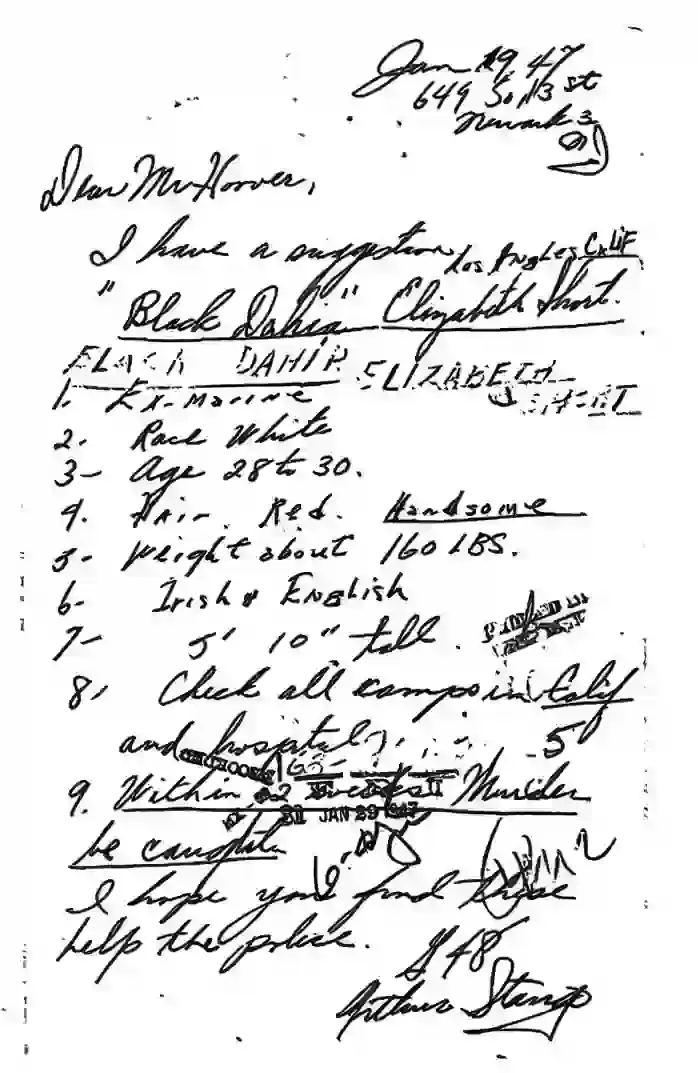 Jan 19, 47
649 So, 13 St
Newark 3
NJ
Dear Mr Hoover,
I have a suggestion Los Angles Calif
"Black Dahia" Elizabeth Short.
BLACK DAHIA ELIZABETH
SHORT
1. Ex-marine
2. Race White
3- Age 28 to 30.
4. Hair. Red. Handsome
5- Weight about 160 LBS.
6- Irish & English
7- 5' 10" tall.
8, Check all camps in Calif
and hospital
5
9. Within 2 weeks Murder
31 JAN 29 1947
be caught
I hope you find these
help the police.
48
Arthur